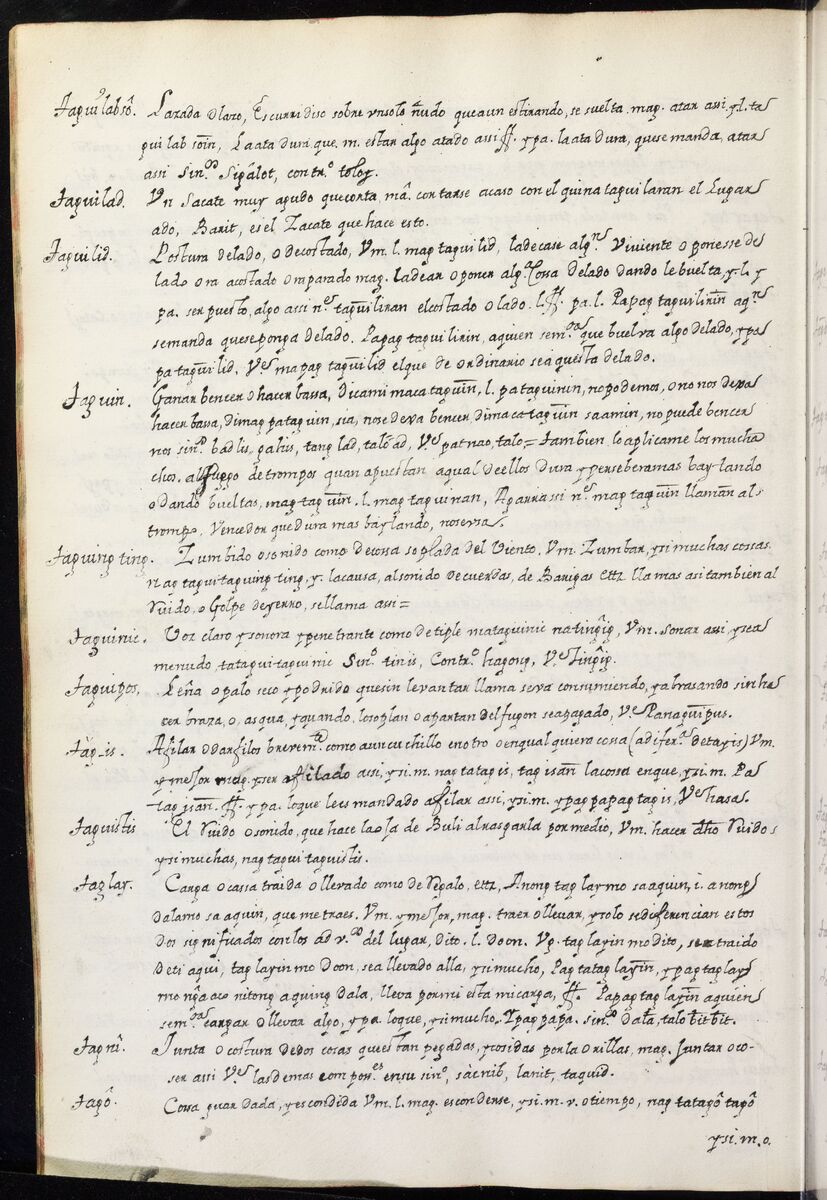 Taguilabsô. Lazada o lazo, Escurridiso sobre vn solo ñudo que aun estirando, se suelta. mag. atar assi y.l. ta
gui lab soin, La ata dura que. m. estar algo atado assi ff. y pa. la ata dura, que se manda, atar
assi Sin.os Sigálot, contr.o toloy.
Taguilad. Vn Sacate muy agudo que corta, mâ. cortarse acaso con el guina taguilaran el Lugar
ado, Banit, es el Zacate que hace esto.
Taguilid. Postura de lado, o de costado, Vm. l. mag taguilid, ladearse alg.ns Viviente o ponesse de
lado ora acostado o mparado mag. ladear o poner alg.a Cossa de lado dando le buelta, y.l. y
pa. ser puesto, algo assi n.es taguiliran el costado o lado. l. ff. pa. l. Papag taguilirin ag.ns
se manda que se ponga de lado. Papag taguilirin, a quien sem.da que buelva algo de lado, y pa
pa taguilid. V.es mapag taguilid el que de ordinario se aquesta de lado.
Taguin. Ganar bencer o hacer bassa, dicami maca taguin, l. pa taguinin, no podemos, o no nos dexa
hacer bassa, dimag pataguin, sia, no se dexa bencer, dimaca taguin sa amin, no puede bencer
nos sin.o badlis, gahis, tang lad, talo ad, V.es patnao, talo = tambien lo aplicame los mucha
chos. al juego de trompos quan apuestan a qual de ellos dura y persebera mas baylando
o dando bueltas, mag taguin. l. mag taguinan, Aparrassi n.es mag taguin llaman al
trompo, Vencedor que dura mas baylando, no ersa.
Taguing ting. Zumbido o sonido como de cossa soplada del Viento. Vm. Zumbar, y si muchas cossas.
nag tagui taguing ting, y. la causa, al sonido de cuerdas, de Barigas ettz llamas asi tambien al
Ruido, o Golpe de yerro, se llama assi =
Taguinic. Voz claro y sonora y penetrante como de tiple mataguinic na tingig, Vm. sonar assi y sea
menudo, tatagui taguinic Sin.o tinis, Contr.o hagong, V.es tingig.
Taguipos, Leña o palo seco y podrido que sin levantar llama seva consumiendo, y abrasando sin ha
cer braza, o, asqua, y quando, lo soplan o apartan del fugon se apagado, V.es Panaguipus.
Tàg-is. Afilar o dar filos brevem.te como a un cuchillo en otro o en qual quiera cossa (a difer.a de tagis) Vm.
y mejor mag. y ser afilado assi, y si. m. nag tatagis, tag isan la cossa en que, y si. m. Pa
tag isan. ff. y pa. loque le es mandado afilar assi, y si. m. y pag papag tagis, V.es hasa.
Taguistis El Ruido o sonido, que hace la oja de Buli al rasparla por medio, Vm. hacer dho Ruido
y si muchas, nag tagui taguistis.
Taglay. Carga o cassa traida o llevado como de Regalo, ettz, Anong taglay mo sa aquin, i. anong
dala mo sa aquin, que me traes. Vm. y mejor, mag. traer o lleuar, y solo se diferencian estos
dos significados con los ad v.os del lugar, dito. l. Doon. Vg. taglayin mo dito, sea traido
de ti aqui, taglayin mo Doon, sea llevado alla, y si mucho, Pag tatag layin, y pag taglay
mo nga aco nitong aquing dala, lleva por mi esta mi carga, ff. Papag taglayin a quien
sem.da cargar o llevar algo, y pa. loque, y si mucho. Ypag papa. sin.o dala, talo bit bit.
Tagni. Junta o costura de dos cosas que estan pegadas, y cosidas por la orillas, mag. Juntar o co-
ser assi V.es las demas compos.es en su sin.o, sàcnib, lanit, taguid.
Tagô. Cossa guardada, y escondida Vm. l. mag. escondense, y si. m. v. o tiempo, nag tatagô tagô
y si. m. o.